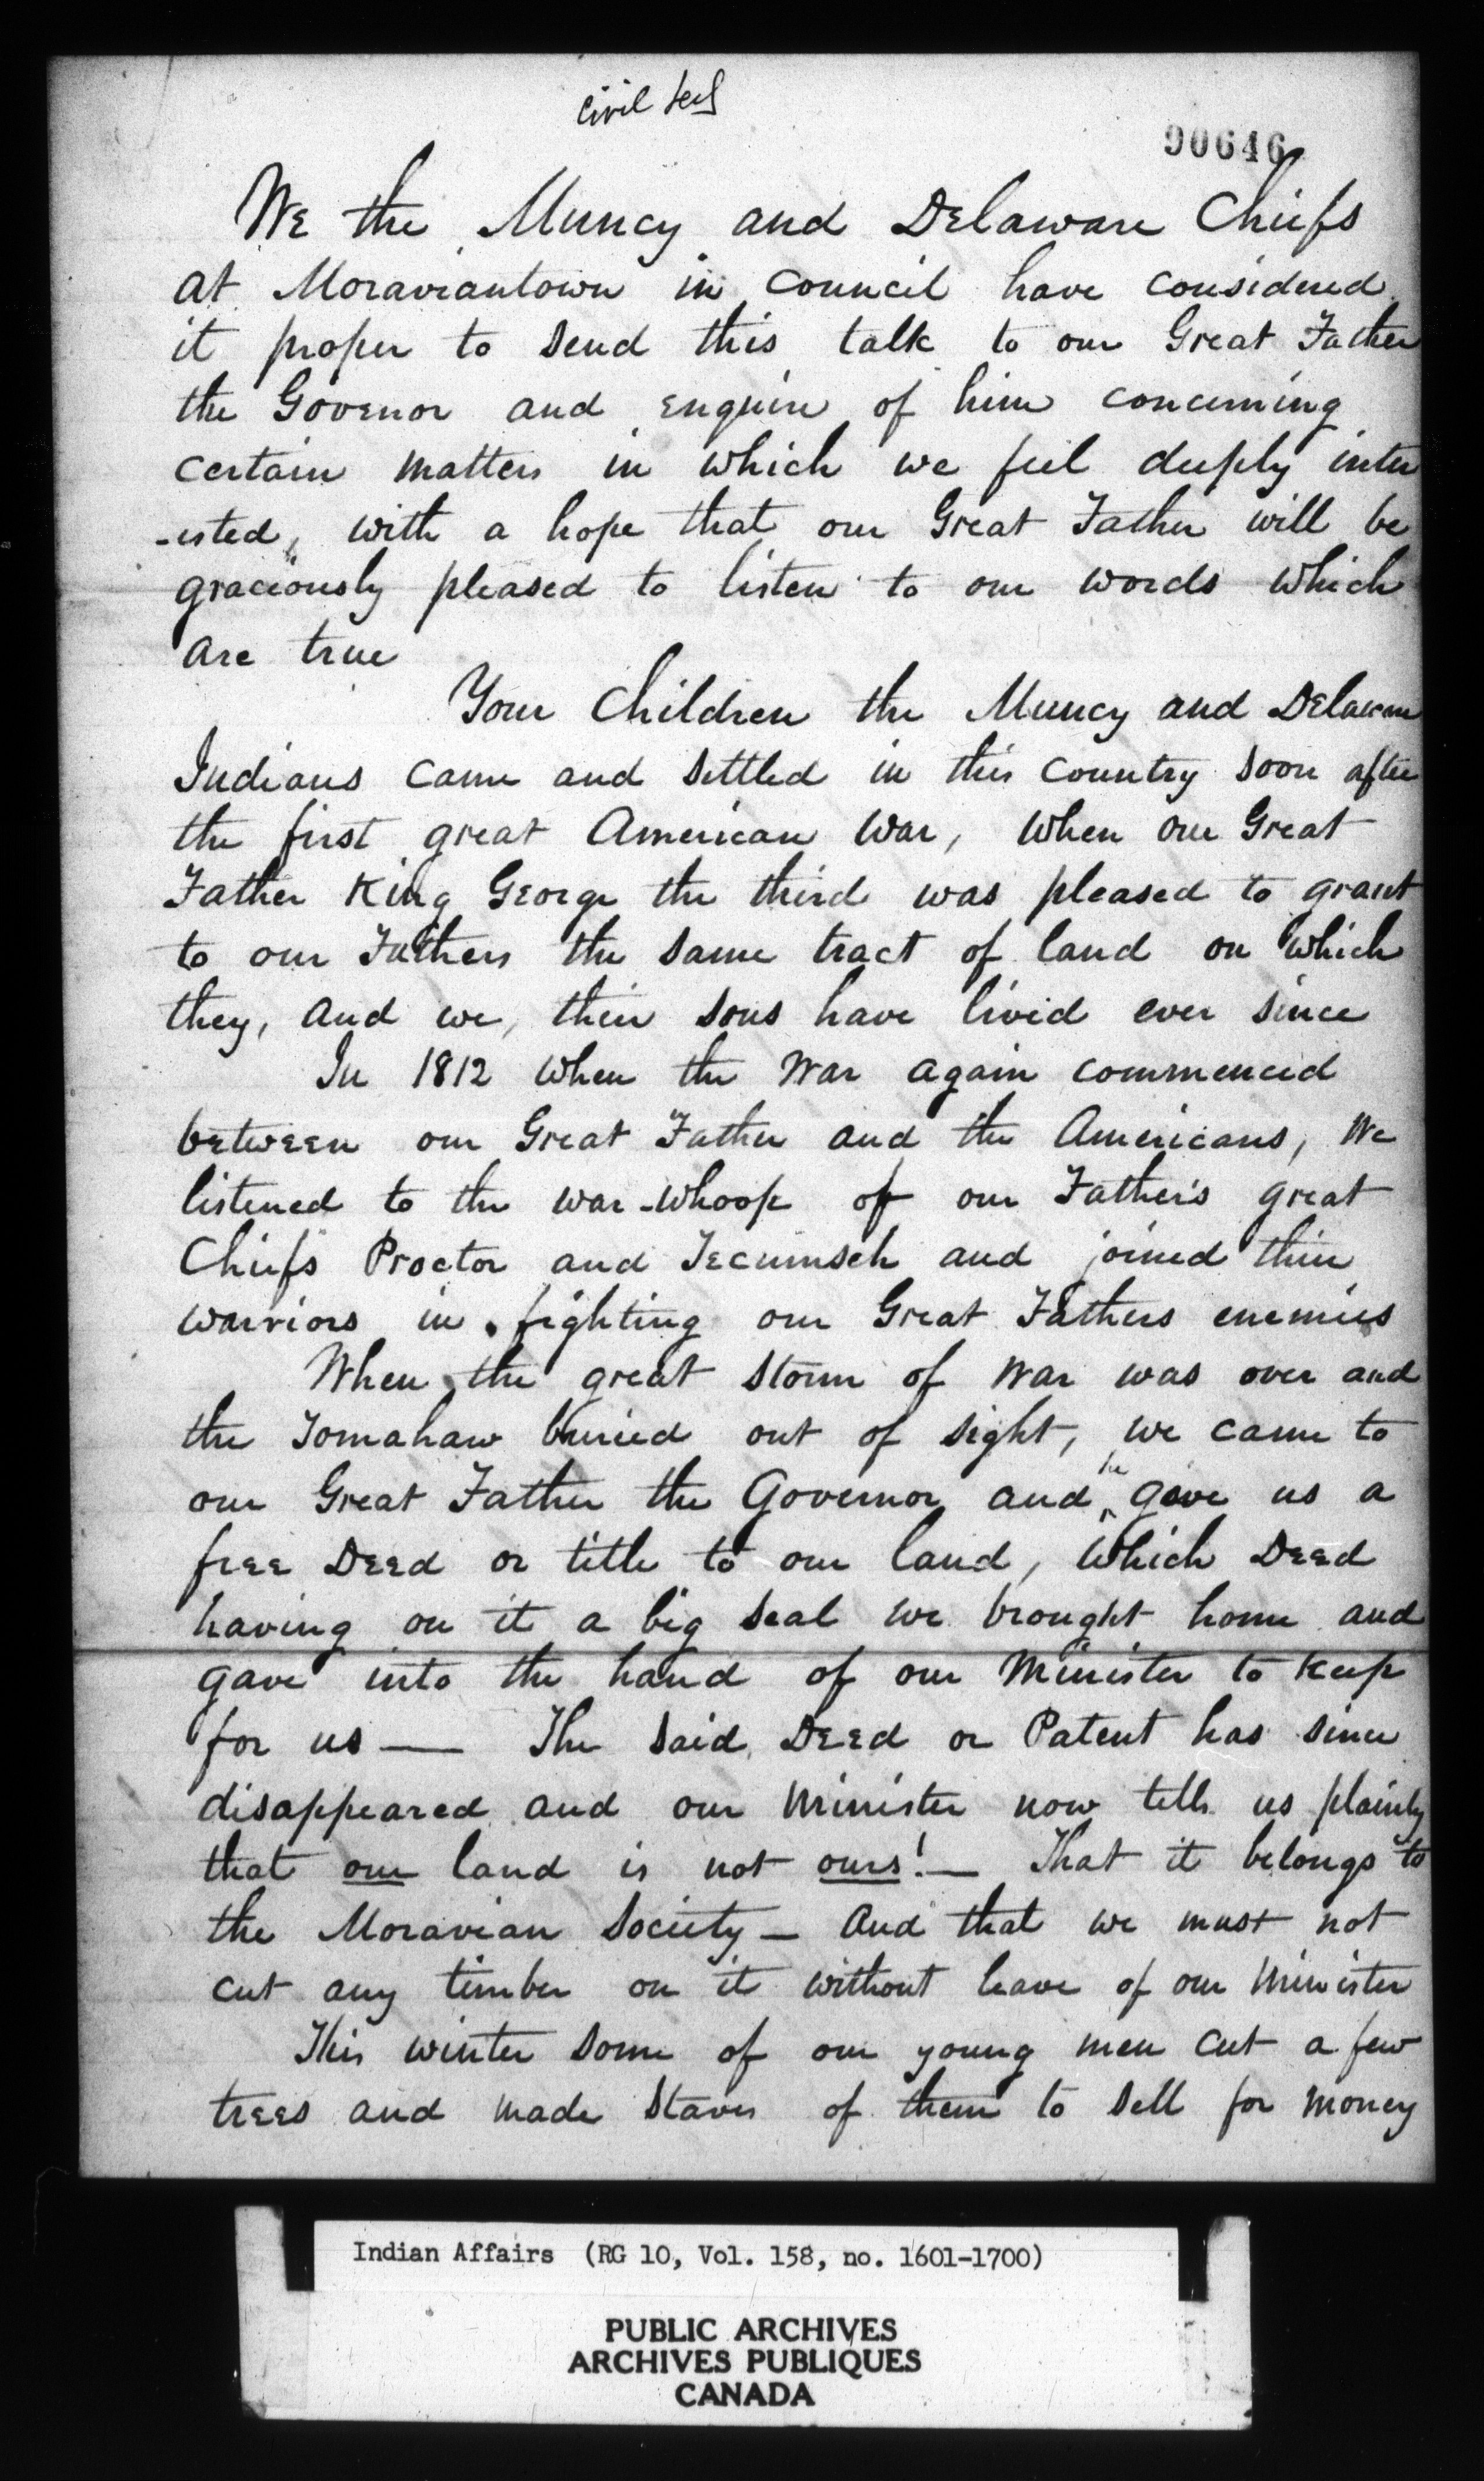 Civil Sec
90646
We the Muncy and Delaware Chiefs
at Moraviantown in Council have considered
it proper to send this talk to our Great Father
the Govenor and enquire of him concerning
certain matters in which we feel deeply inter
-ested, with a hope that our Great Father will be
graciously pleased to listen to our words which
are true
Your Children the Muncy and Delaware
Indians came and settled in this Country soon after
the first great American War, when our Great
Father King George the third was pleased to grant
to our Fathers the same tract of land on which
they, and we, their sons have lived ever since
In 1812 when the War again commenced
between our Great Father and the Americans, We
listened to the war-whoop of our Father's great
Chiefs Proctor and Tecumseh and joined their
warriors in fighting our Great Fathers enemies
When the great storm of War was over and
the Tomahaw buried out of sight, we came to
our Great Father the Governor and he gave us a
free Deed or title to our land, which Deed
having on it a big seal we brought home and
gave into the hand of our Minister to keep
for us — The said Deed or Patent has since
disappeared and our Minister now tells us plainly
that our land is not ours! — That it belongs to
the Moravian Society — And that we must not
cut any timber on it without leave of our Minister
This winter some of our young men cut a few
trees and made staves of them to sell for money
Indian Affairs (RG 10, Vol. 158, no. 1601-1700)
PUBLIC ARCHIVES
ARCHIVES PUBLIQUES
CANADA